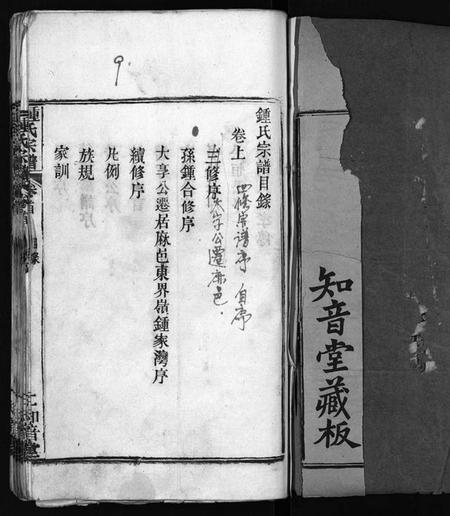 知音堂藏板
鍾氏宗譜目錄
卷上
四修宗譜序 自序
三修序
公遷麻邑
孫鍾合修序
大享公遷居麻邑東界嶺鍾家灣序
續修序
凡例
族規
家訓
9.
鍾氏宗譜
卷首
目錄
知音堂